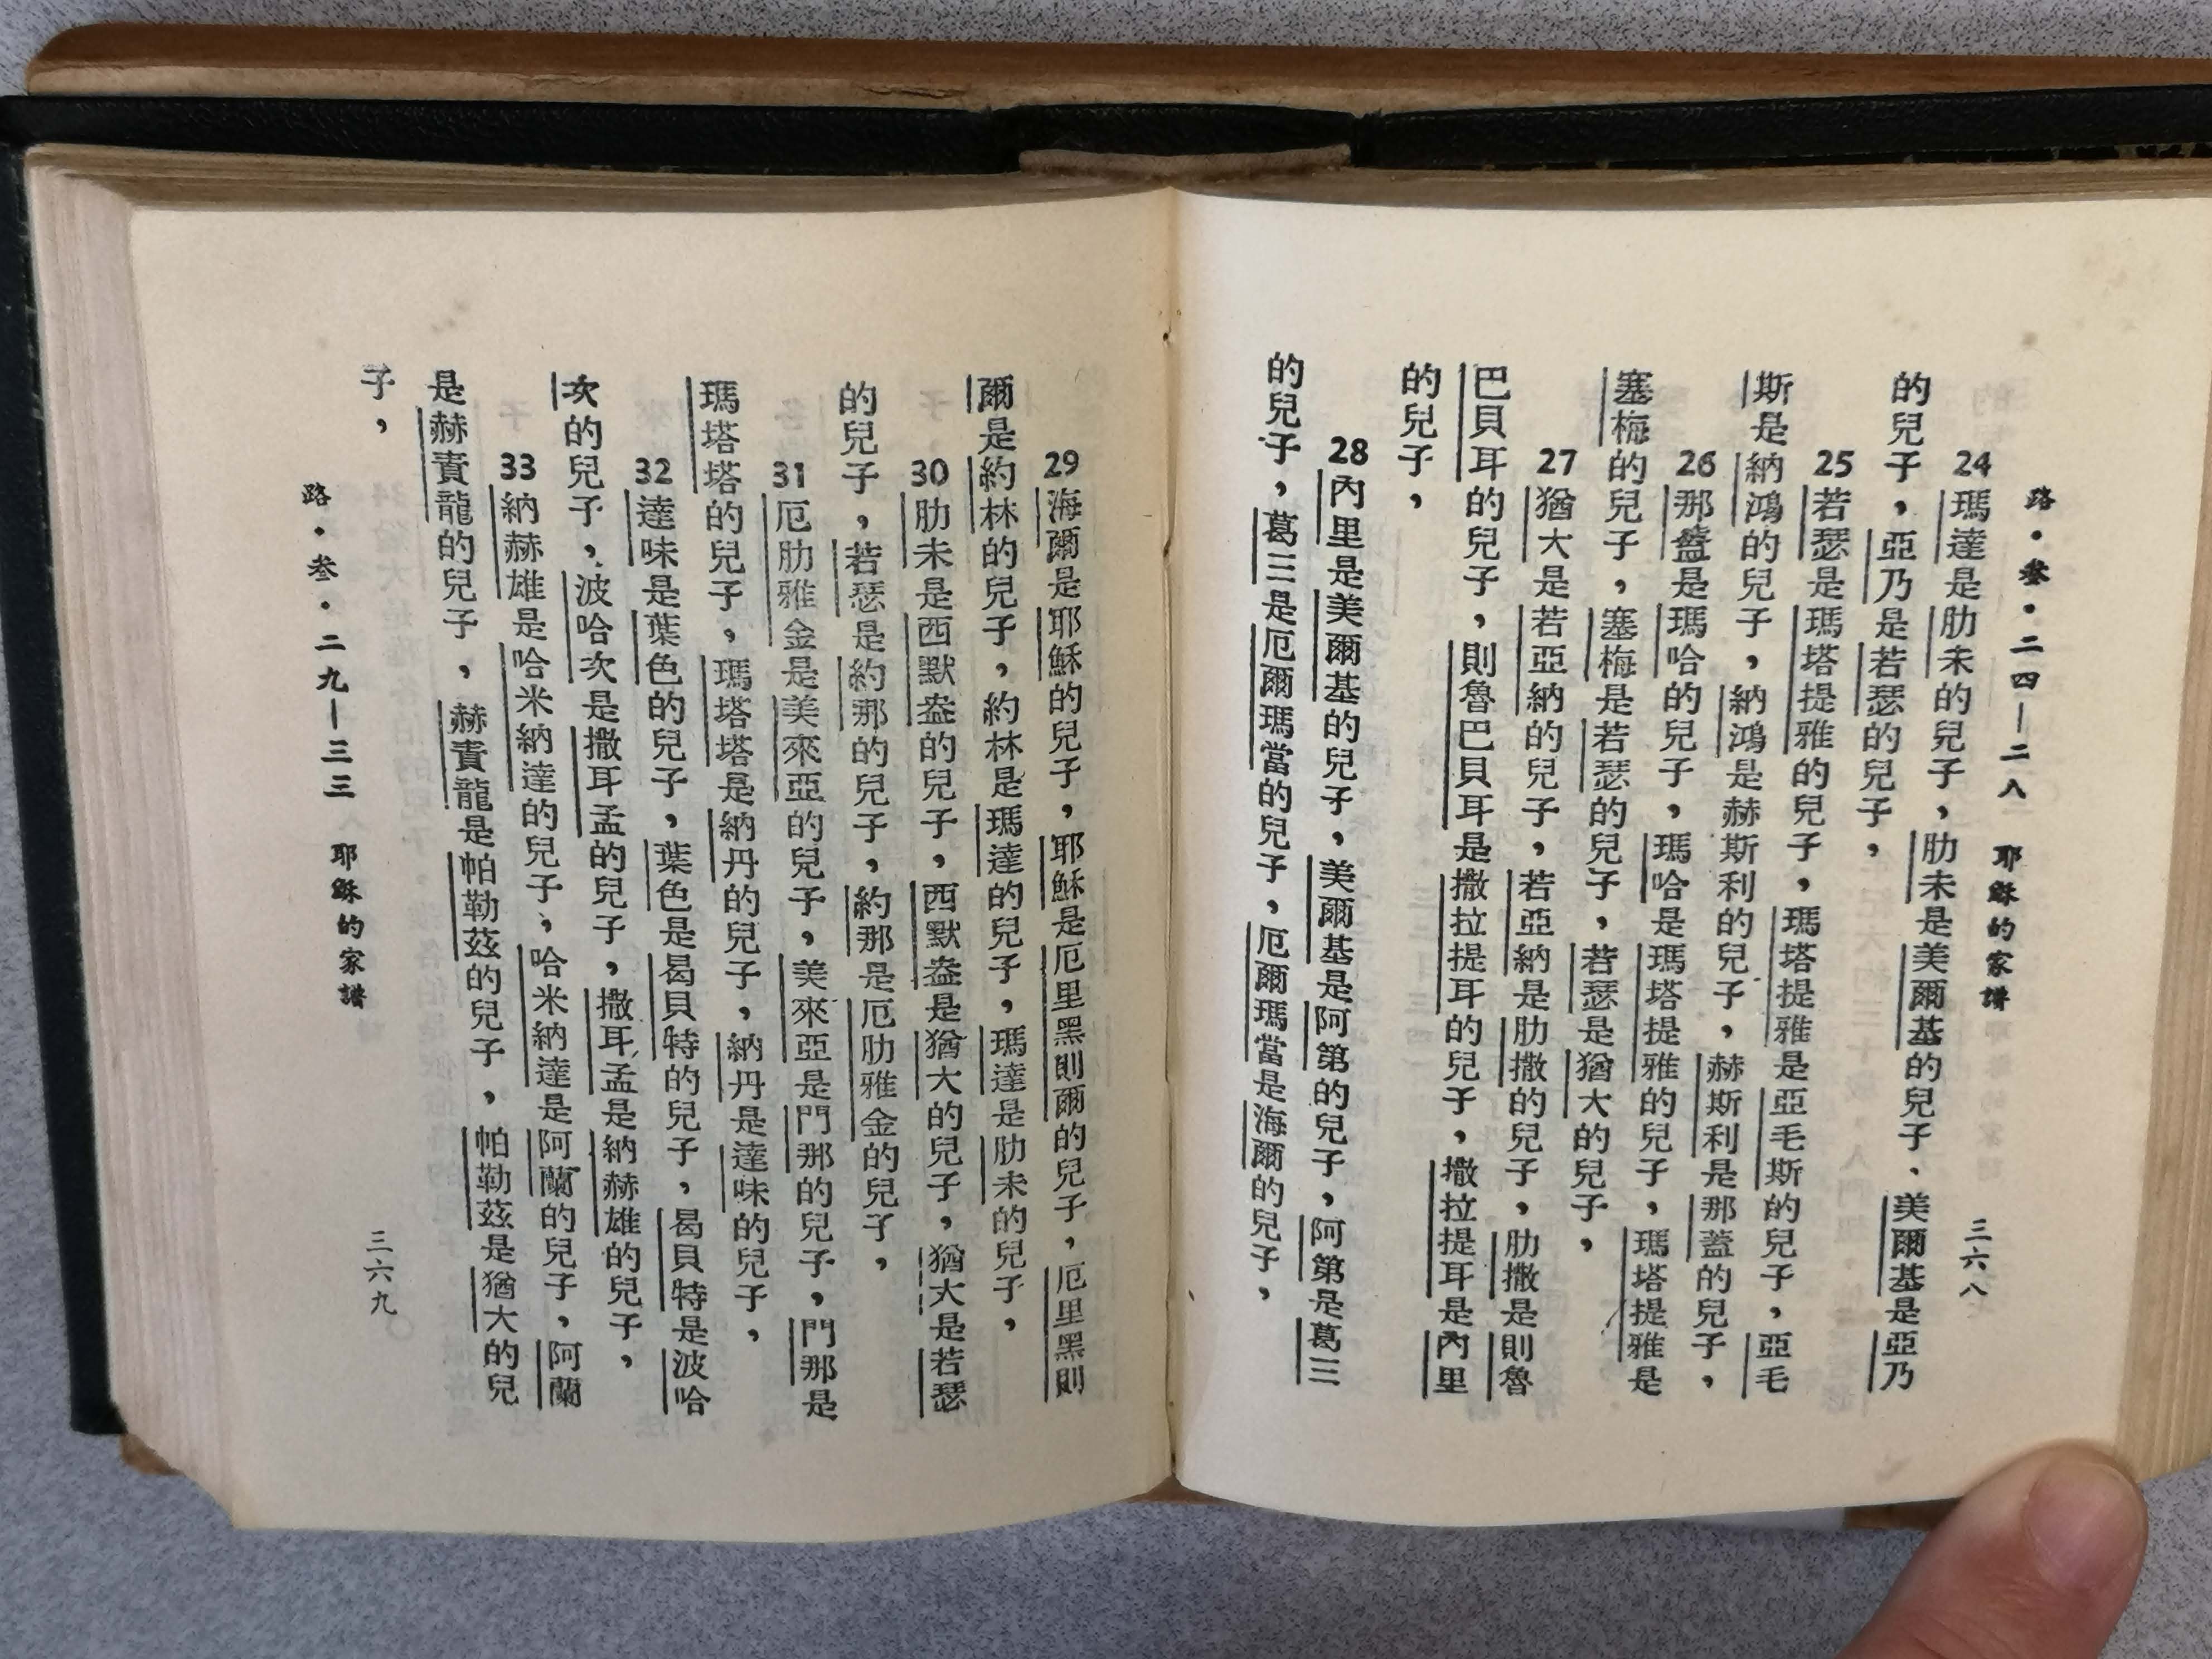 路·叁·二四—二八 耶穌的家譜 三六八
24瑪達是肋未的兒子，肋未是美爾基的兒子、美爾基是亞乃
的兒子，亞乃是若瑟的兒子，
25若瑟是瑪塔提雅的兒子，瑪塔提雅是亞毛斯的兒子，亞毛
斯是納鴻的兒子，納鴻是赫斯利的兒子，赫斯利是那蓋的兒子，
26那盍是瑪哈的兒子，瑪哈是瑪塔提雅的兒子，瑪塔提雅是
塞梅的兒子，塞梅是若瑟的兒子，若瑟是猶大的兒子，
27猶大是若亞納的兒子，若亞納是肋撒的兒子，肋撒是則魯
巴貝耳的兒子，則魯巴貝耳是撒拉提耳的兒子，撒拉提耳是內里
的兒子，
28內里是美爾基的兒子，美爾基是阿第的兒子，阿第是葛三
的兒子，葛三是厄爾瑪當的兒子，厄爾瑪當是海爾的兒子，
29海爾是耶穌的兒子，耶穌是厄里黑則爾的兒子，厄里黑則
爾是約林的兒子，約林是瑪達的兒子，瑪達是肋未的兒子，
30肋未是西默盎的兒子，西默盎是猶大的兒子，猶大是若瑟
的兒子，若瑟是約那的兒子，約那是厄肋雅金的兒子，
31厄肋雅金是美來亞的兒子，美來亞是門那的兒子，門那是
瑪塔塔的兒子，瑪塔塔是納丹的兒子，納丹是達味的兒子，
32達味是葉色的兒子，葉色是曷貝特的兒子，曷貝特是波哈
次的兒子，波哈次是撒耳孟的兒子，撒耳孟是納赫雄的兒子，
33納赫雄是哈米納達的兒子，哈米納達是阿蘭的兒子，阿蘭
是赫責龍的兒子，赫責龍是帕勒茲的兒子，帕勒茲是猶大的兒
子，
路·叁·二九—三三 耶穌的家譜 三六九